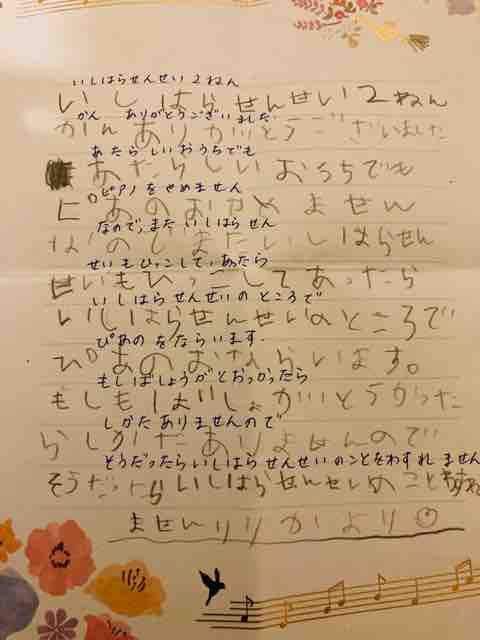 いしはらせんせい2ねん
いしはらせんせい2ねん
かん ありがとうございました
かんありがとうございました
あたらしいおうちでも
あたらしいおうちでも
ピアノをやめません
ピあのおやめません
なので、またいしはらせん
なのでまたいしはらせん
せいもひっこして、あたら
せいもひっこしてあったら
いしはらせんせいのところで
いしはらせんせいのところで
ぴあのをならいます.
ぴあのおならいます。
もしばしょがとおっかったら
もしもしばしょがいとうかった
しかたありませんので
らしかたありませんので
そうだったらいしはらせんせいのことをわすれません
そうだったらいしはらせんせいのこと
ませんりりかより